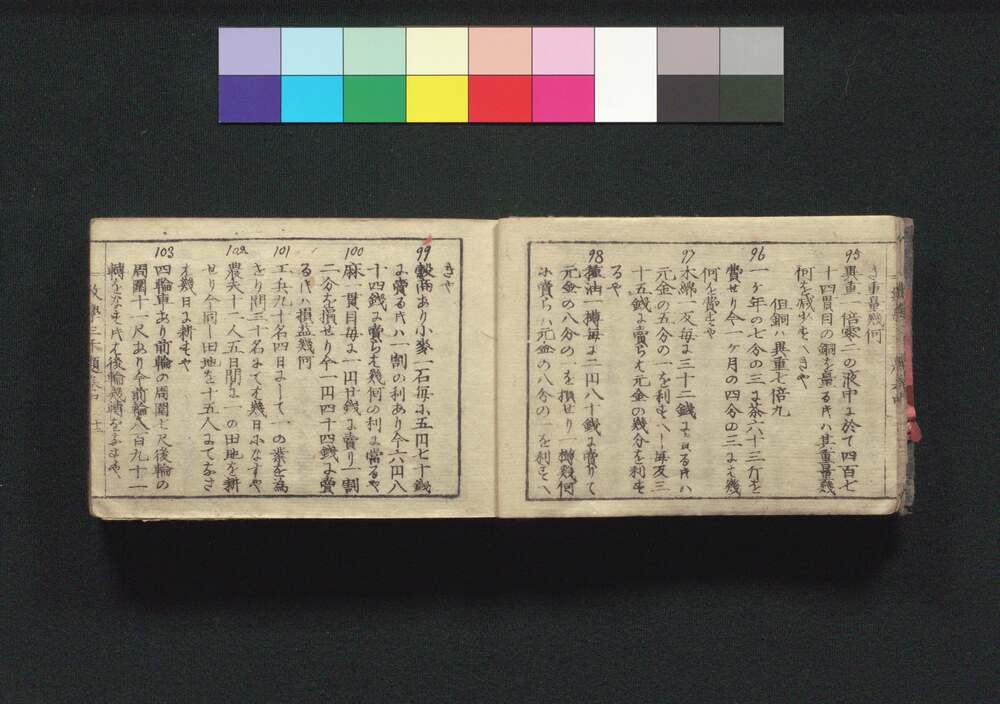 き重量幾何
95
異重一倍零二の液中に於て四百七
十四貫目の銅を量る時ハ其重量幾
何を減少すへきや
但銅ハ異重七倍九
96
一ケ年の七分の三に茶六十三斤を
費せり今一ケ月の四分の三にハ幾
何を費すや
97
木綿一反毎に三十二銭に賣る時ハ
元金の五分の一を利すへし毎反三
十五銭に賣らハ元金の幾分を利す
るや
98
油一樽毎に二円八十銭に賣りて
元金の八分の一を損せり一樽幾何
に賣らハ元金の八分の一を利すへ
きや
99
穀商あり小麥一石毎に五円七十銭
に賣る時ハ一割の利あり今六円八
十四銭に賣らハ幾何の利に當るや
100
麻一貫目毎に一円廿銭に賣り一割
二分を損せり今一円四十四銭に賣
る時ハ損益幾何
101
工兵九十名四日にして一の業を為
せり問三十名にてハ幾日になすや
102
農夫十二人五日間に一の田地を耕
せり今同し田地を十五人にてなさ
ハ幾日に耕すや
103
四輪車あり前輪の周圍七尺後輪の
周圍十一尺あり今前輪八百九十一
轉をなす時ハ後輪幾轉をなすや